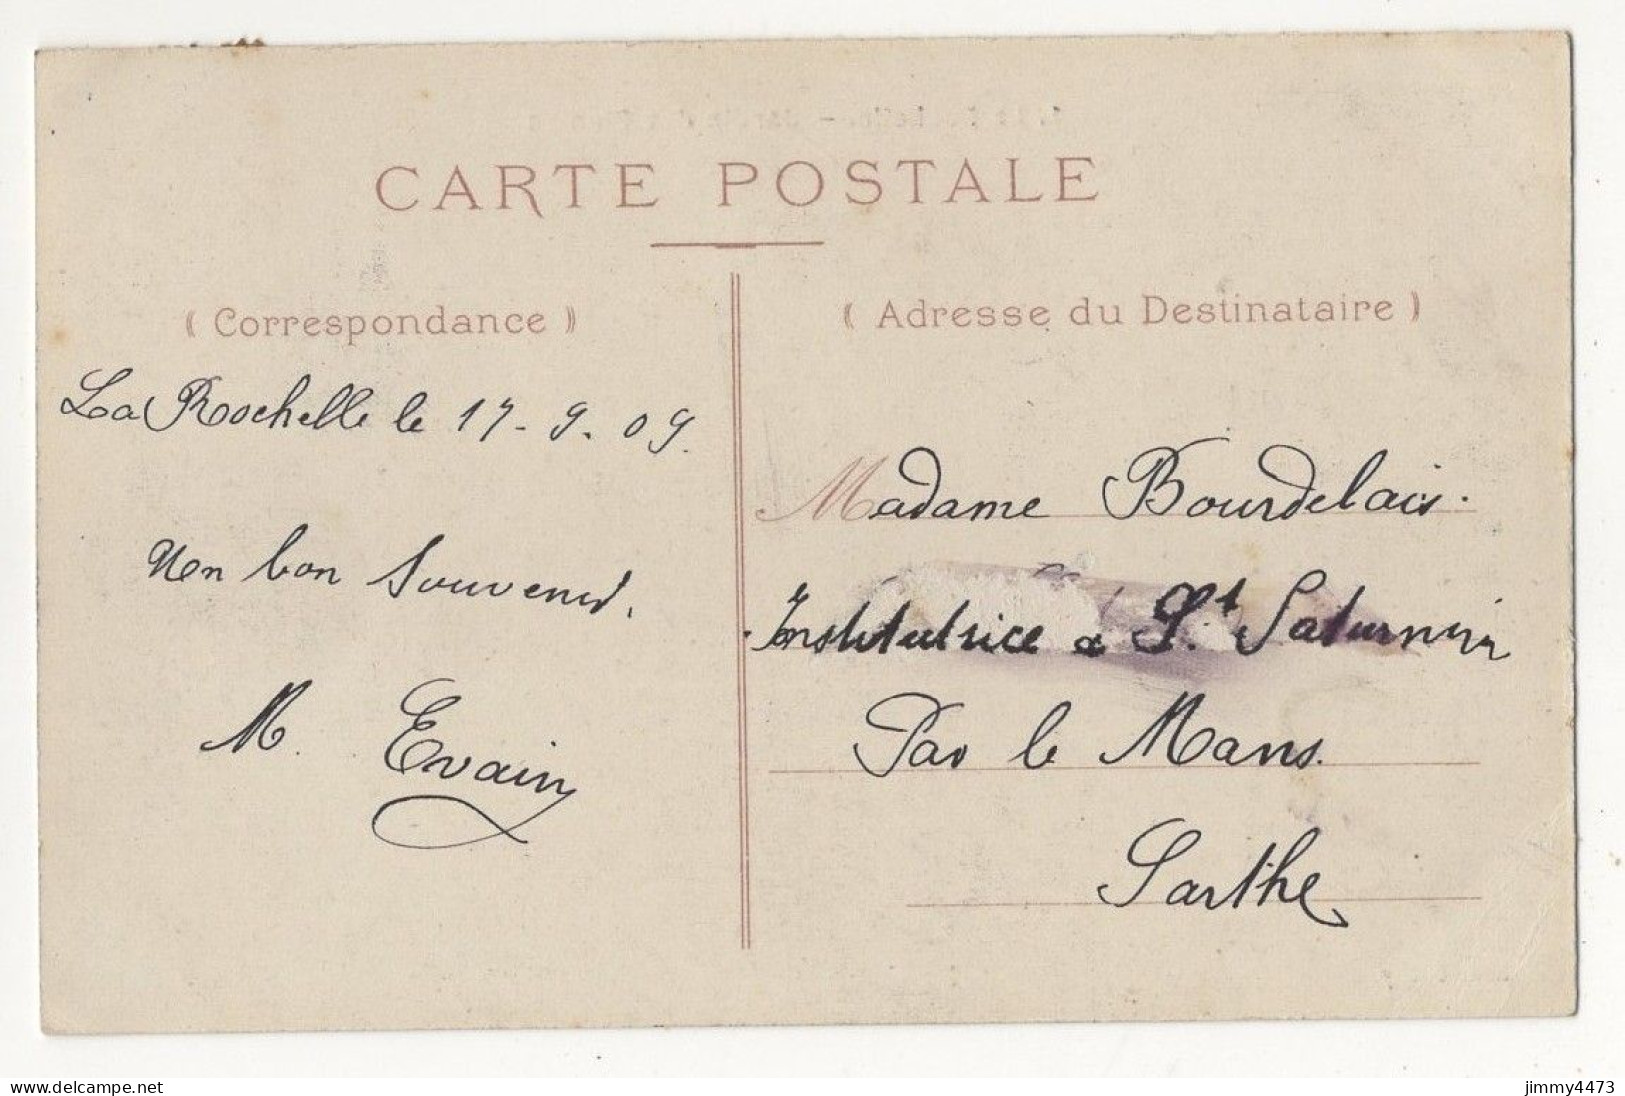 CARTE POSTALE
( Correspondance )
La Rochelle le 17-9.09.
Un bon Souvenir.
M. Evain
( Adresse du Destinataire )
Madame Bourdelais.
Institutrice à St. Saturnin
Par le Mans.
Sarthe
jimmy4473